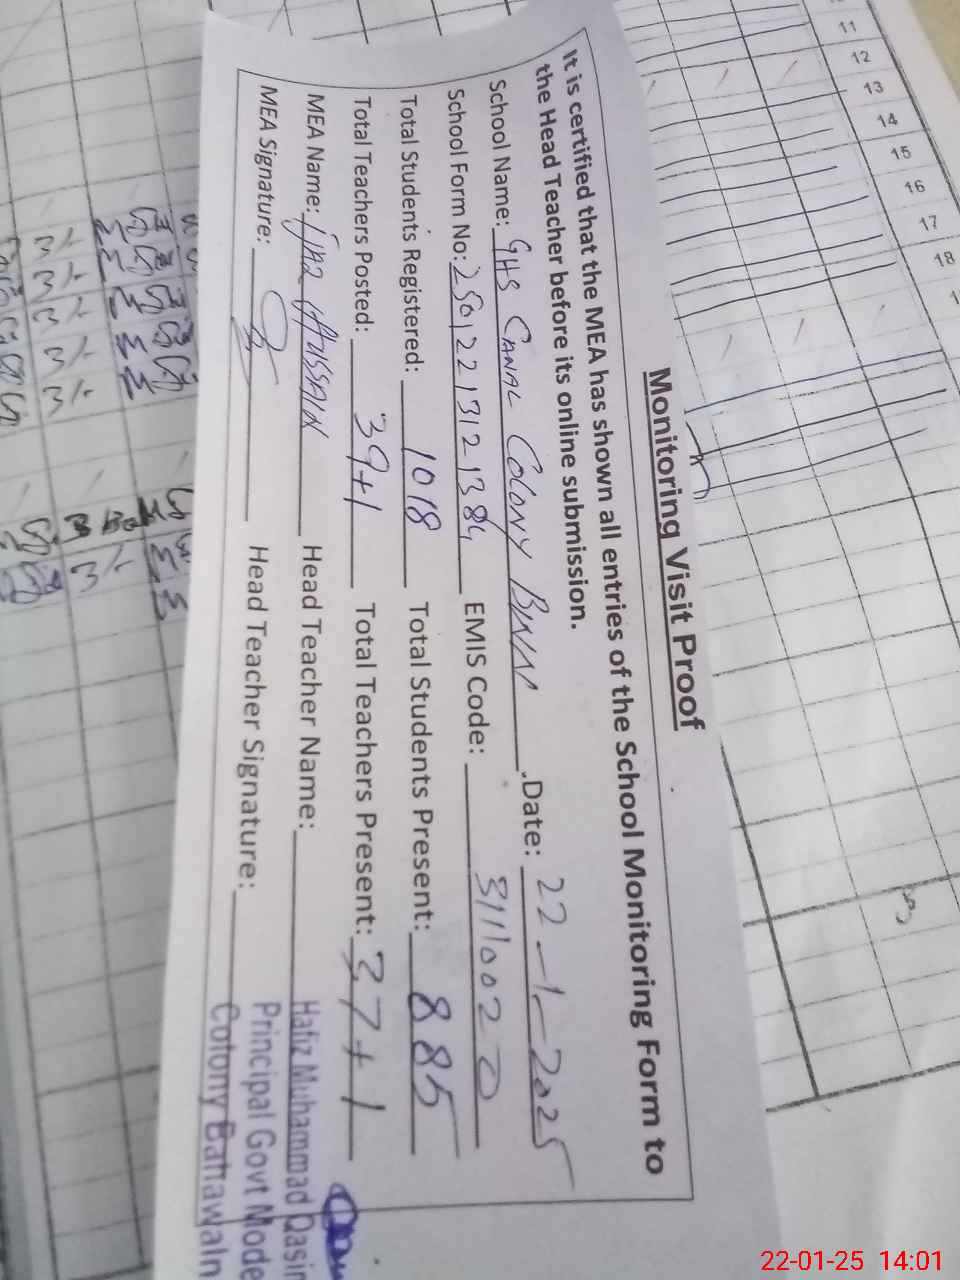 Monitoring Visit Proof
It is certified that the MEA has shown all entries of the School Monitoring Form to
the Head Teacher before its online submission.
School Name: GHS CANAL COLONY BWN Date: 22-1-2025
School Form No: 25012213121384 EMIS Code: 31110022 0
Total Students Registered: 1018 Total Students Present: 885
Total Teachers Posted: 39+1 Total Teachers Present: 37+1
MEA Name: IJAZ HUSSAIN Head Teacher Name:
MEA Signature: Head Teacher Signature:
Hafiz Muhammad Qasim
Principal Govt Mode
Colony Bahawaln
11
12
13
14
15
16
17
18
22-01-25 14:01